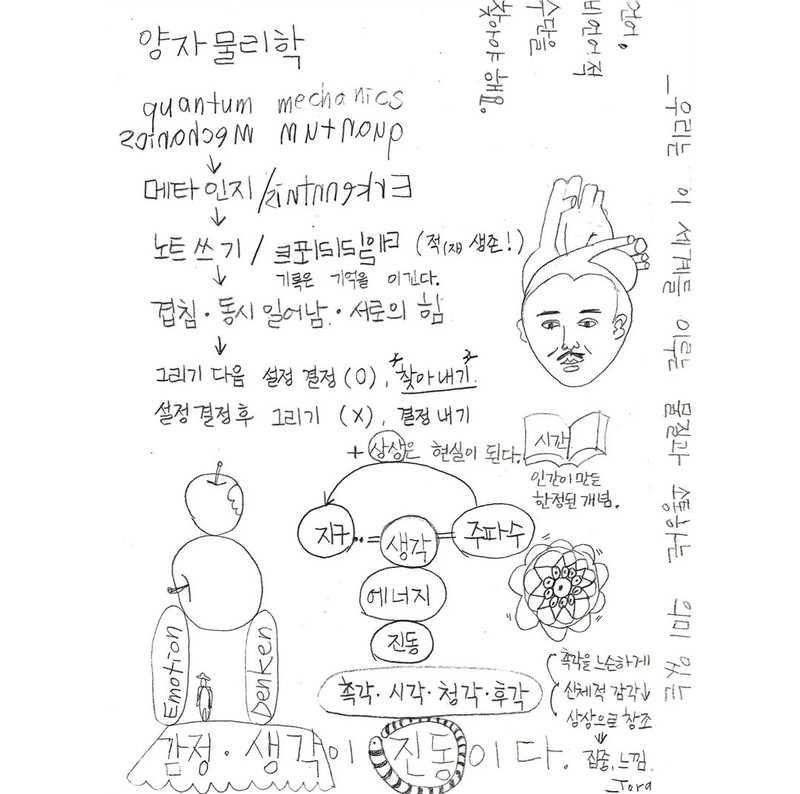 양자물리학
quantum mechanics
메타인지/
노트 쓰기/ (적(재) 생존!)
기록은 기억을 이긴다.
겹침·동시 일어남·서로의 힘
그리기 다음 설정 결정 (O), 찾아내기.
설정 결정 후 그리기 (X), 결정 내기
+ 상상은 현실이 된다.
시간
인간이 만든
한정된 개념.
지구 = 생각 = 주파수
에너지
진동
촉각·시각·청각·후각
촉각을 느슨하게
신체적 감각↓
상상으로 창조
집중, 느낌.
Emotion
Denken
감정·생각이 진동이다.
_Jora
_우리는 이 세계를 이루는 물질과 소통하는 의미 있는
언어,
비언어적
수단을
찾아야 해요.